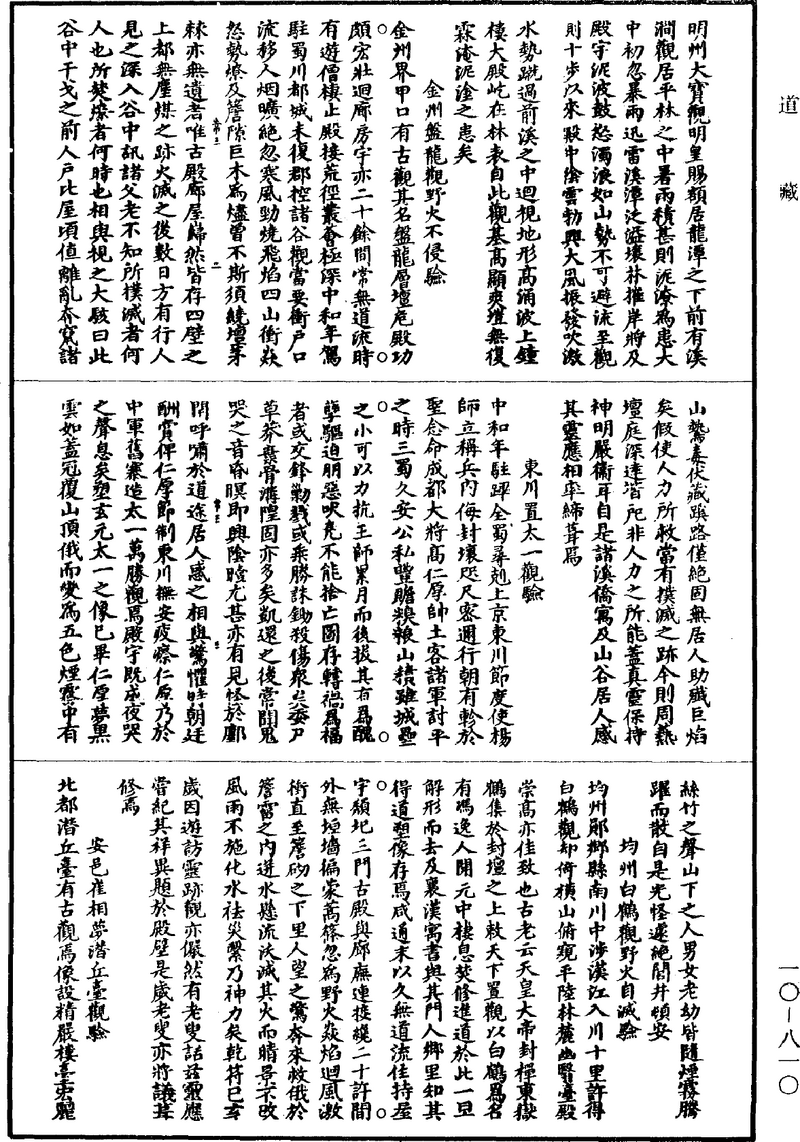 道藏
明州大寶觀明皇賜額居龍潭之下前有溪
澗觀居平林之中暑雨積甚則泥潦為患大
中初忽暴雨迅雷溪潭泛溢壞林摧岸將及
殿宇泥波鼓怒濁浪如山勢不可避流至觀
則十步以來殿中陰雲勃興大風振發吹激
水勢蹴過前溪之中迴視地形高涌波上鐘
樓大殿屹在林表自此觀基高顯爽塏無復
霖淹泥塗之患矣
金州盤龍觀野火不侵驗
金州界甲口有古觀其名盤龍層壇危殿功
頗宏壯迴廊房宇亦二十餘間常無道流時
有遊僧棲止殿接荒徑叢薈極深中和年駕
駐蜀川都城未復郡控諸谷觀當要衝戶口
流移人烟曠絕忽寒風勁燒飛焰四山衝焱
怒勢燎及簷隙巨木為燼曾不斯須繞壇茅
棘亦無遺者唯古殿廊屋歸然皆存四壁之
上都無塵煤之跡火滅之後數日方有行人
見之深入谷中訊諸父老不知所撲滅者何
人也所焚燎者何時也相與視之大駭曰此
谷中干戈之前人戶比屋頃值離亂奔竄諸
山鷙毒伏藏蹊路僅絕固無居人助殲巨焰
矣假使人力所救當有撲滅之跡今則周爇
壇庭深達階戺非人力之所能蓋真靈保持
神明嚴衛耳自是諸溪僑寓及山谷居人感
其靈應相率締葺焉
東川置太一觀驗
中和年駐蹕全蜀尋剋上京東川節度使楊
師立稱兵內侮封壤咫尺密邇行朝有軫於
聖念命成都大將高仁厚帥土客諸軍討平
之時三蜀久安公私豐贍糗糧山積雖城壘
之小可以力抗王師累月而後拔其有為醜
孽驅迫朋惡吠堯不能捨亡圖存轉禍為福
者或交鋒勦戮或乘勝誅鋤殺傷眾矣委尸
草莽棄骨溝隍固亦多矣凱還之後常聞鬼
哭之音昏暝即興陰晦尤甚亦有見怪於鄽
閈呼嘯於道途居人感之相與驚懼時朝廷
酬賞俾仁厚節制東川撫安疲瘵仁厚乃於
中軍舊寨造太一萬勝觀焉殿宇既成夜哭
之聲息矣塑玄元太一之像已畢仁厚夢黑
雲如蓋冠覆山頂俄而變為五色煙霧中有
絲竹之聲山下之人男女老幼皆隨煙霧騰
躍而散自是光怪遂絕閭井頓安
均州白鶴觀野火自滅驗
均州鄖鄉縣南川中涉漢江入川十里許得
白鶴觀却倚橫山俯窺平陸林麓幽翳臺殿
崇高亦佳致也古老云天皇大帝封禪東嶽
鶴集於封壇之上敕天下置觀以白鶴為名
有馮逸人開元中棲息焚修進道於此一旦
解形而去及襄漢寄書與其門人鄉里知其
得道塑像存焉咸通末以久無道流住持屋
宇頹圮三門古殿與廊廡連接纔二十許間
外無垣墻偏蒙蒿篠忽為野火焱焰迴風激
衝直至簷砌之下里人望之驚奔來救俄於
簷霤之內迸水懸流沃滅其火而晴景不改
風雨不施化水祛災繫乃神力矣乾符已亥
歲因遊訪靈跡觀亦儼然有老叟話茲靈應
嘗紀其祥異題於殿壁是歲老叟亦將議葺
修焉
安邑崔相夢潛丘臺觀驗
北都潛丘臺有古觀焉像設精嚴樓臺宏麗
一〇—八一〇